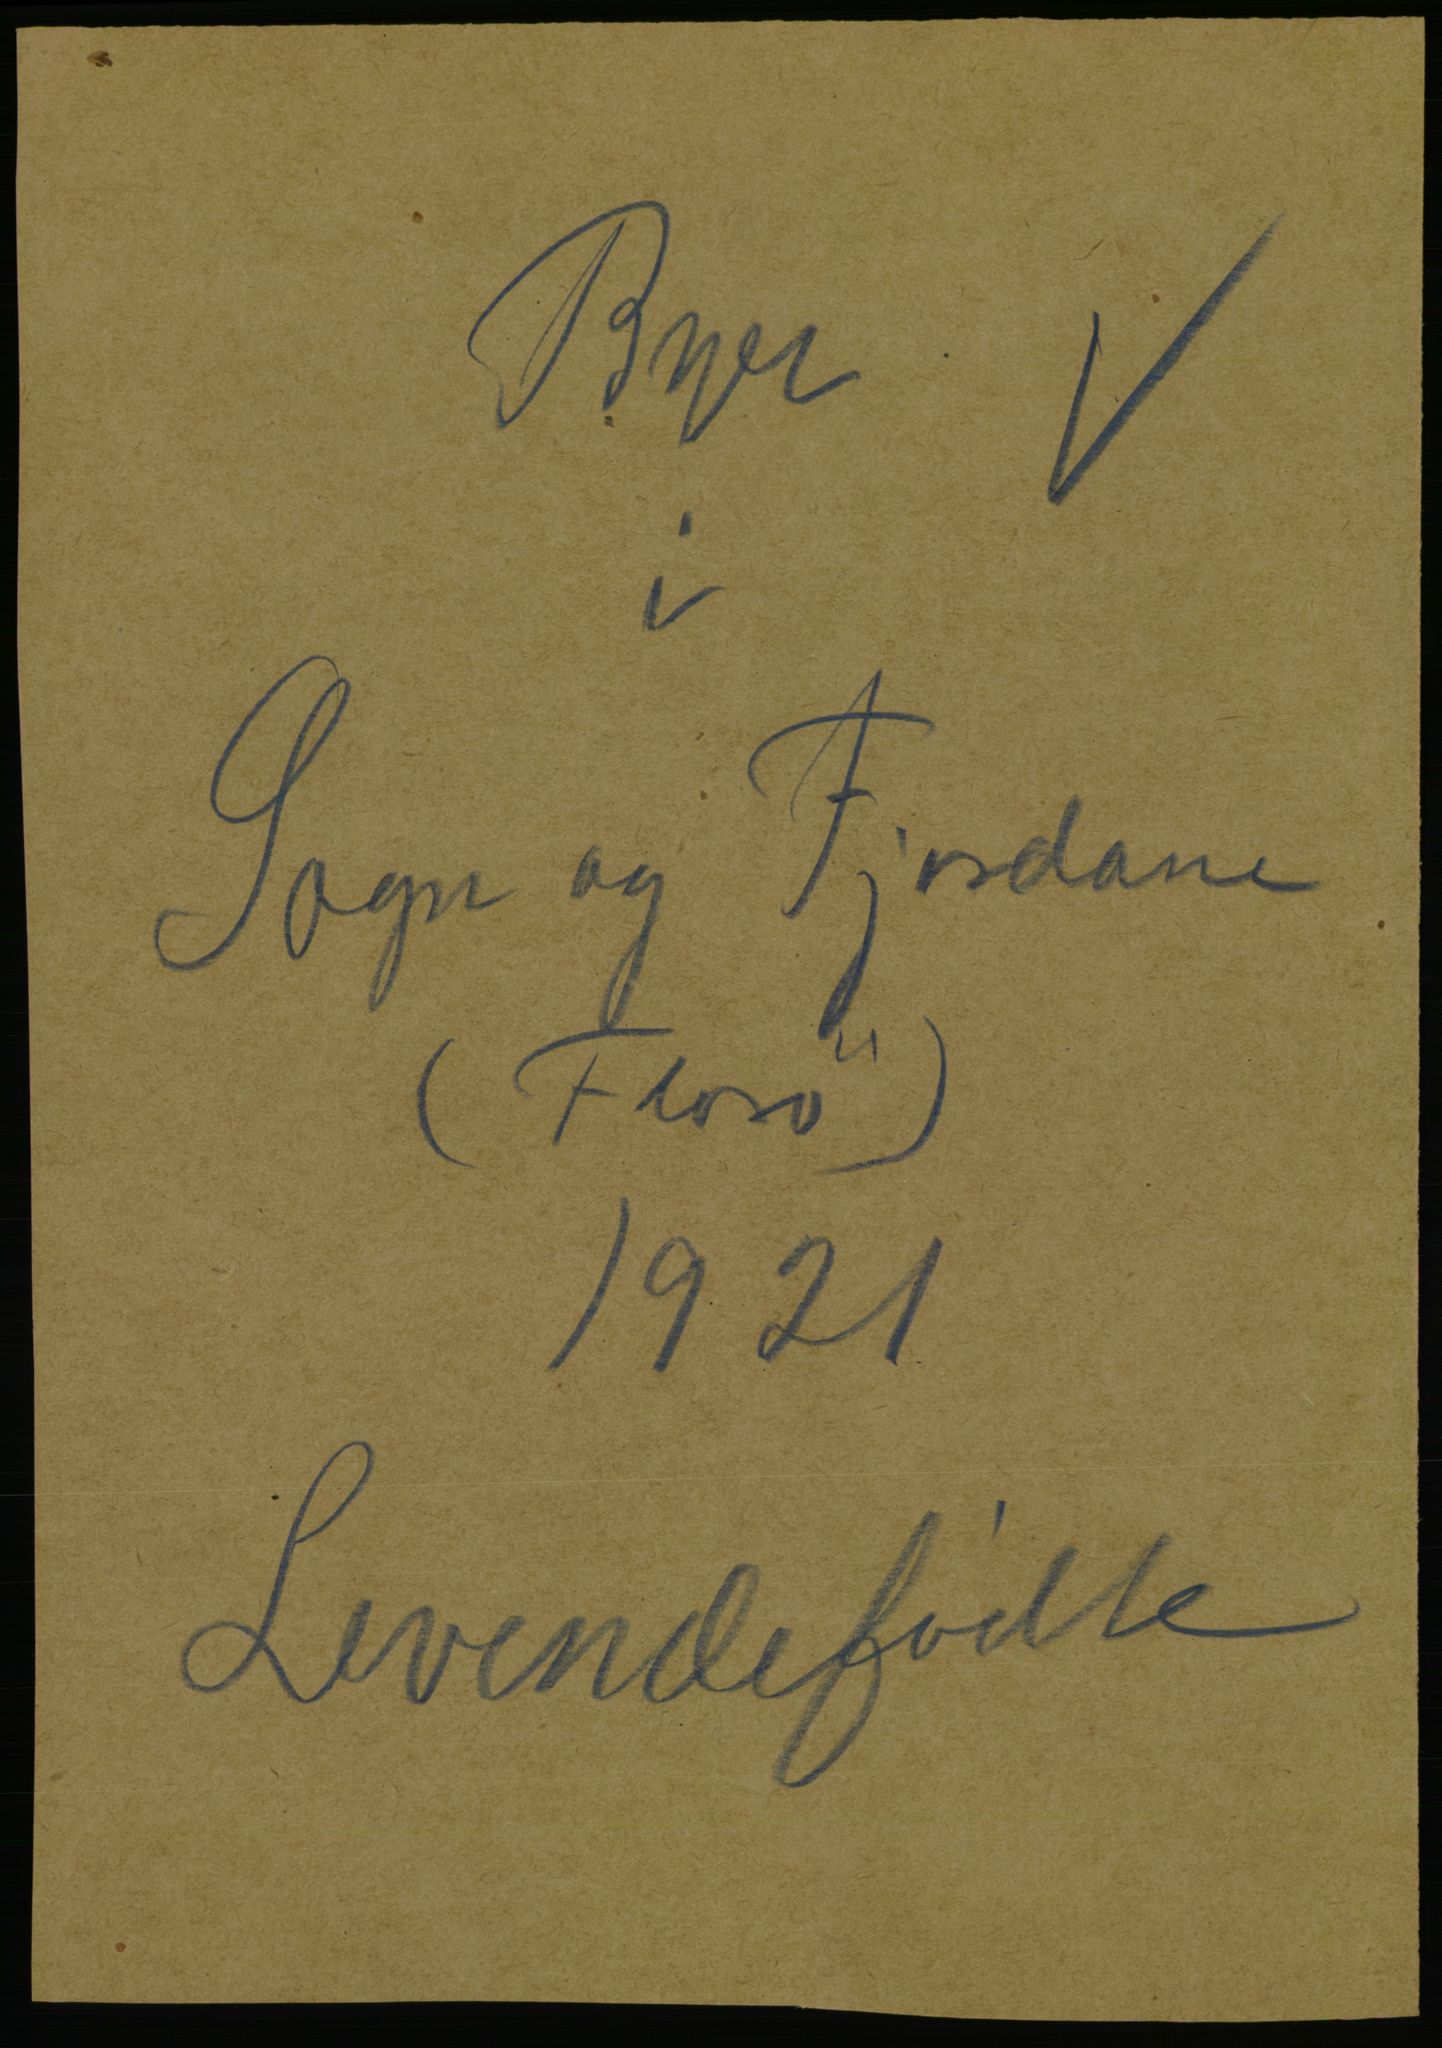 Byer ✓
i
Sogn og Fjordane
(Florö)
1921
Levendefödte